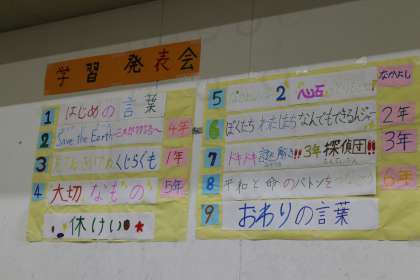 学習 発表会
1 はじめの言葉
2 Save the Earth 4年
3 くじらぐも 1年
4 大切なもの 5年
休けい
5 2 なかよし
6 ぼくたち わたしたち なんでもできるんジャー 2年
7 ドキドキ 謎解き!! 3年探偵団!! 3年
8 平和と命のバトンを 6年
9 おわりの言葉